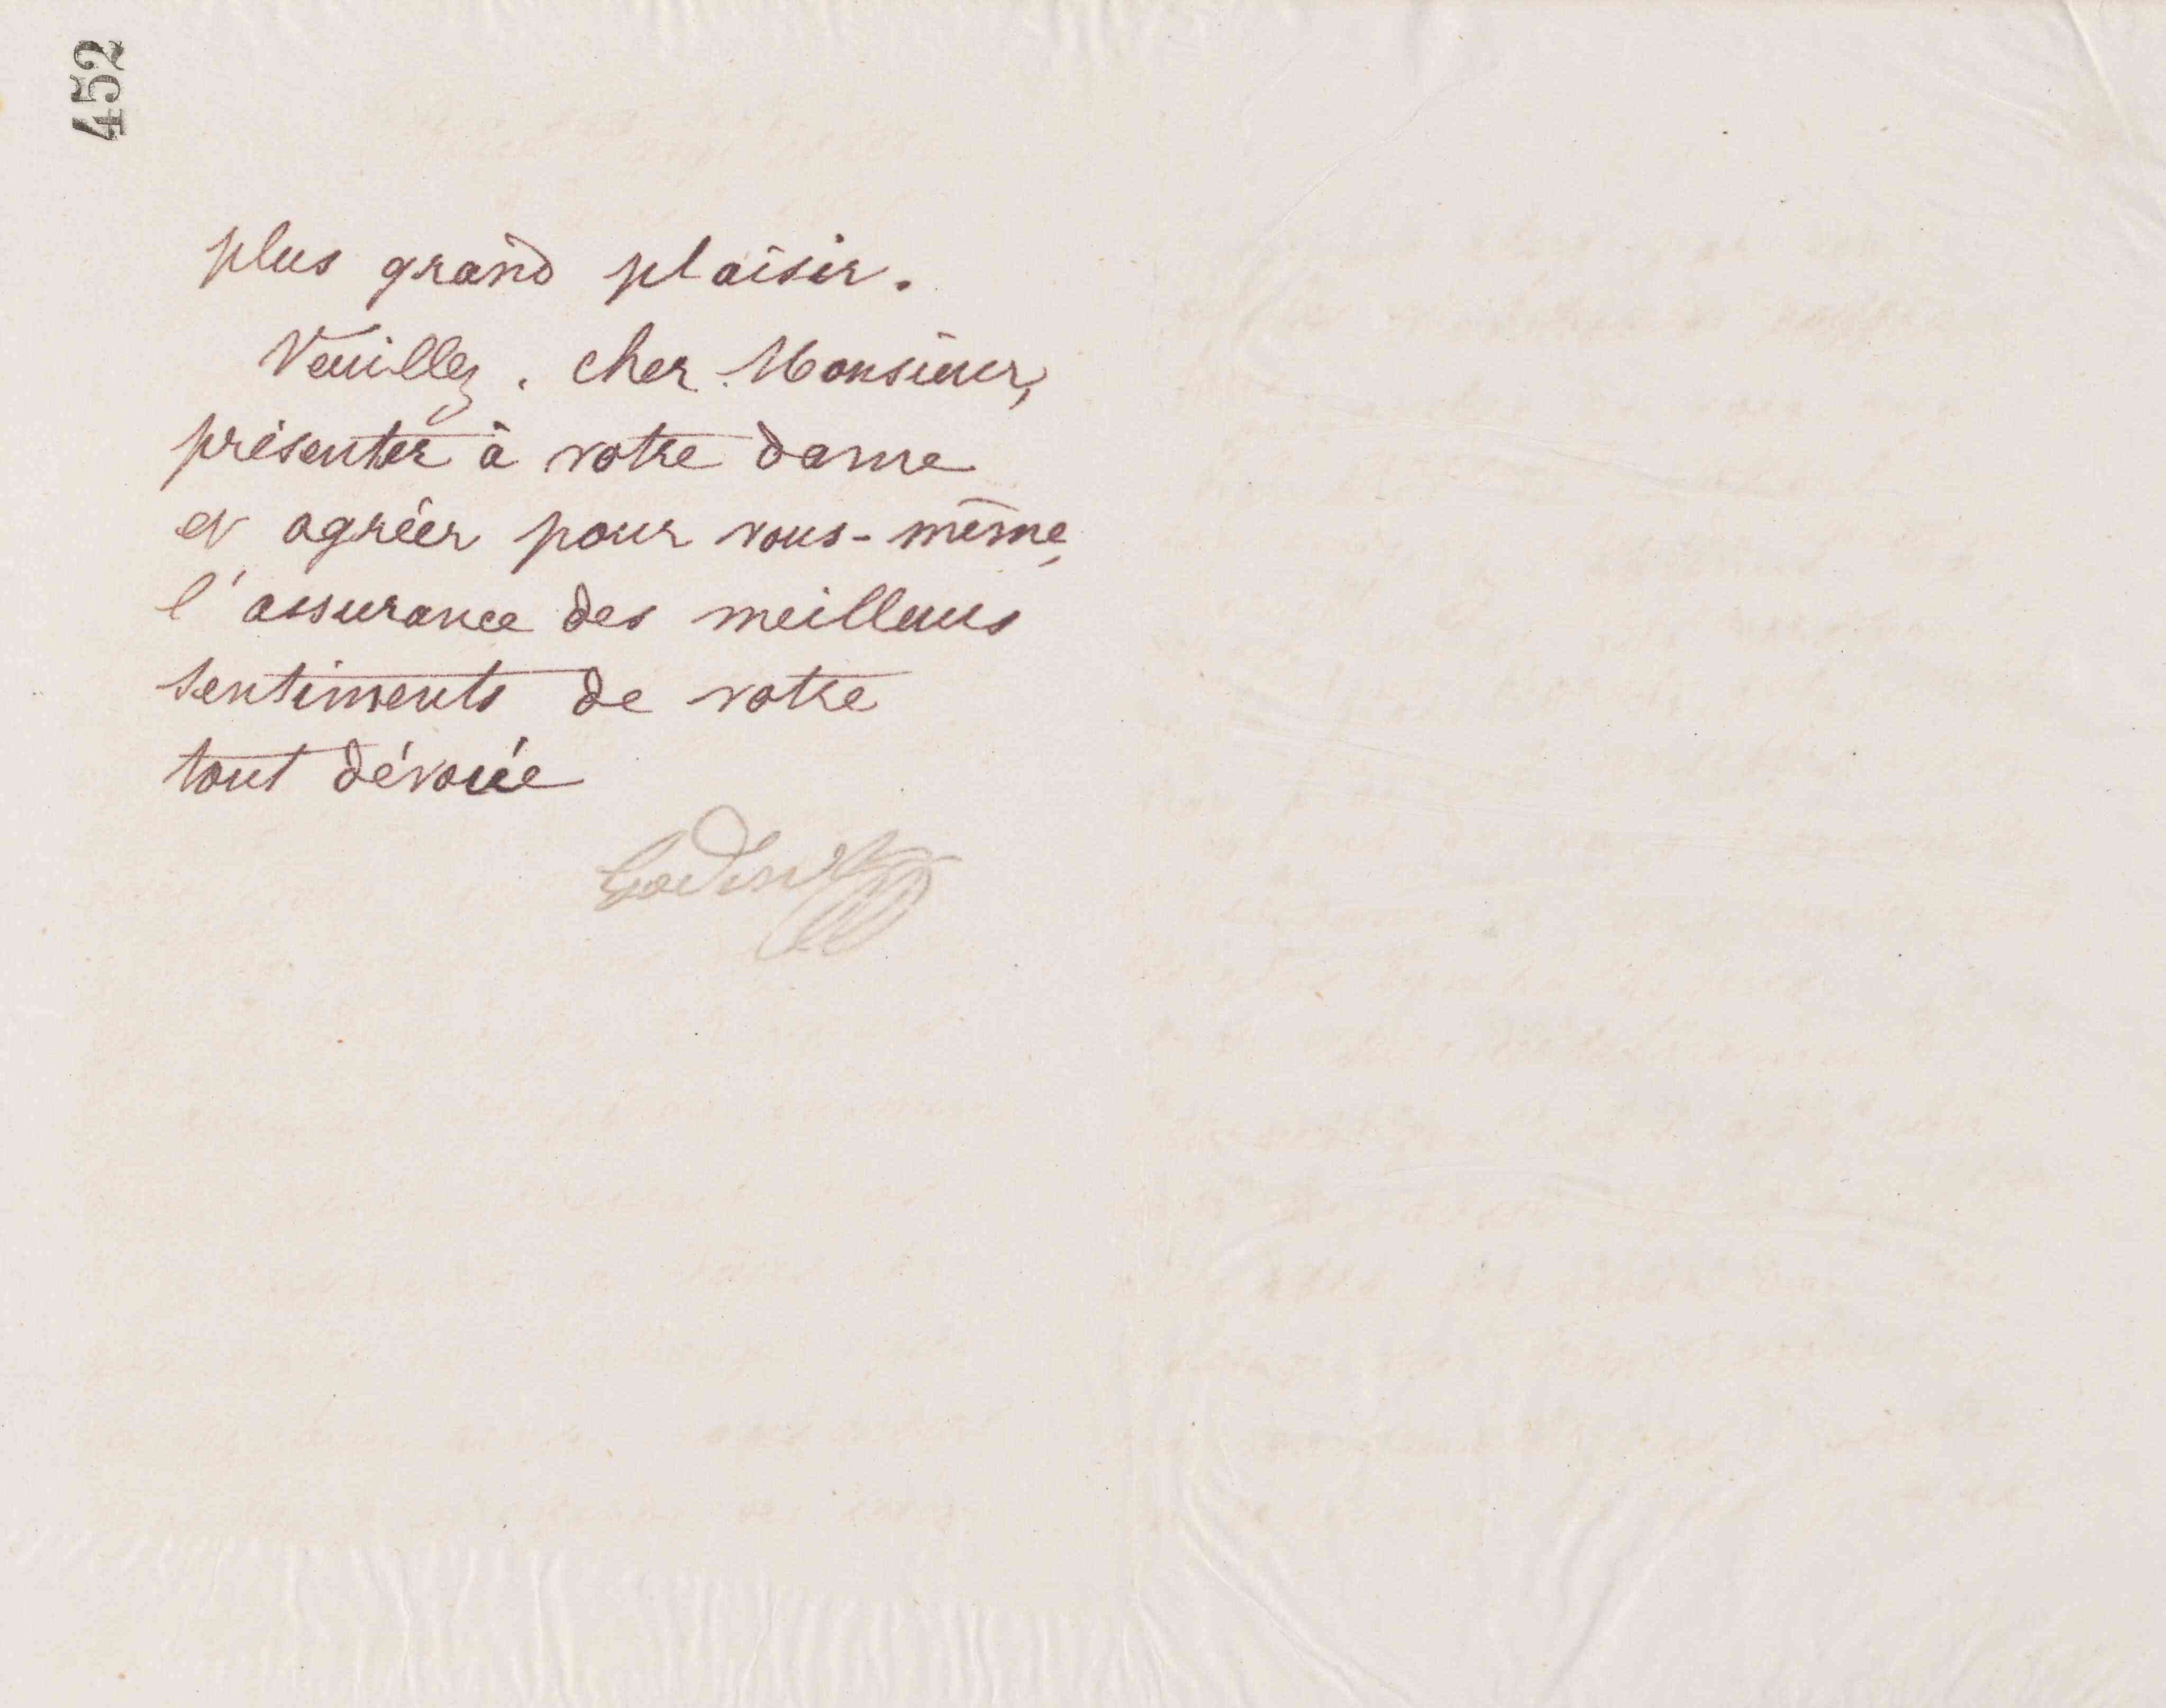 452
plus grand plaisir.
Veuillez, cher Monsieur,
présenter à votre dame
et agréer pour vous-même,
l'assurance des meilleurs
sentiments de votre
tout dévoué
Godin